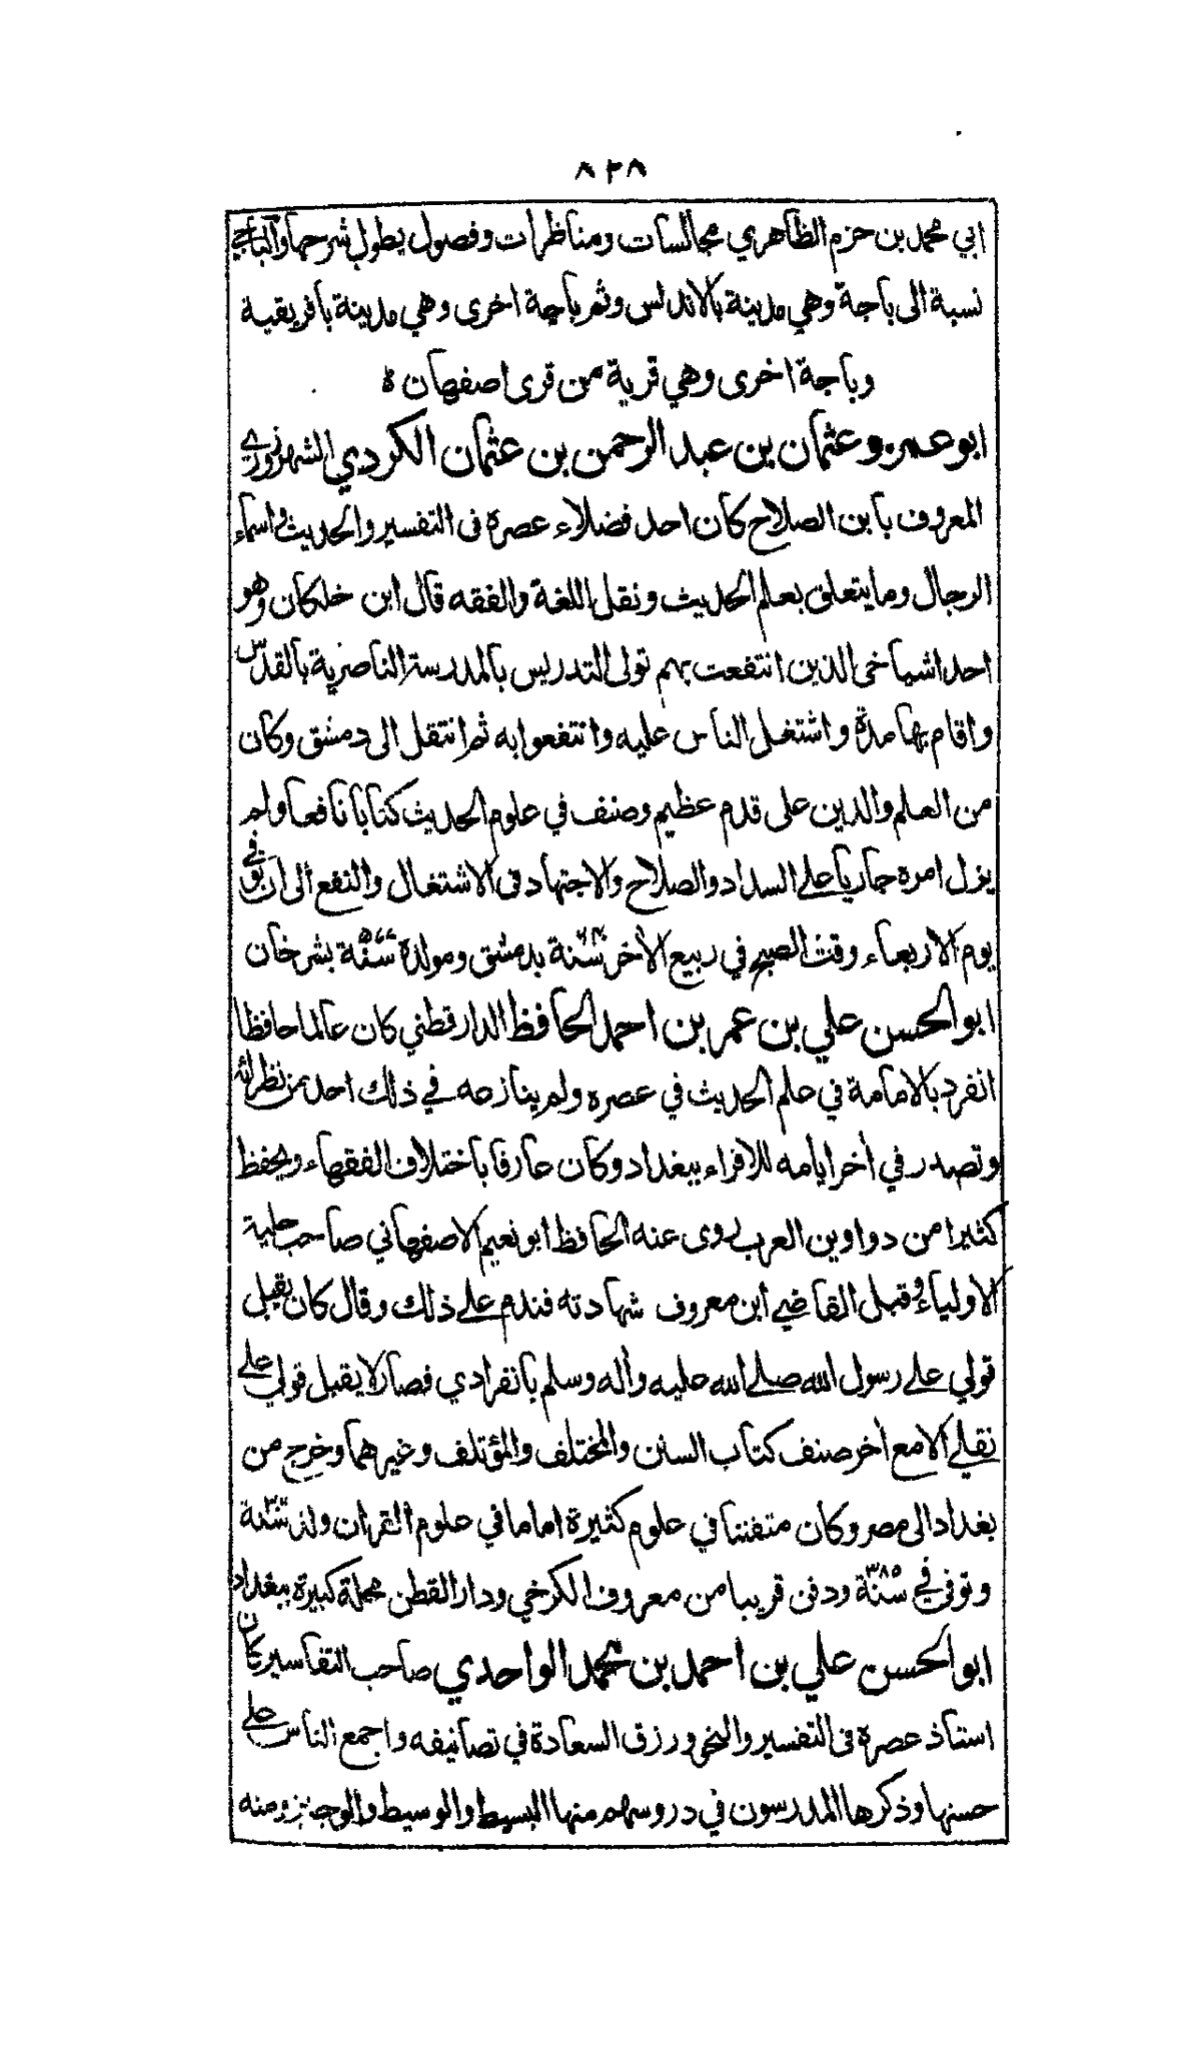 ٨٢٨
ابي محمد بن حزم الظاهري مجالسات ومناظرات وفصول يطول شرحها والباجي
نسبة الى باجة وهي مدينة بالاندلس وثم باجة اخرى وهي مدينة بافريقية
وباجة اخرى وهي قرية من قرى اصفهان ه
ابو عمرو عثمان بن عبد الرحمن بن عثمان الكردي الشهرزوري
المعروف بابن الصلاح كان احد فضلاء عصره فى التفسير والحديث واسماء
الرجال وما يتعلق بعلم الحديث ونقل اللغة والفقه قال ابن خلكان وهو
احد اشياخى الذين انتفعت بهم تولى التدريس بالمدرسة الناصرية بالقدس
واقام بها مدة واشتغل الناس عليه وانتفعوا به ثم انتقل الى دمشق وكان
من العلم والدين على قدم عظيم وصنف في علوم الحديث كتابا نافعا ولم
يزل امره جاريا على السداد والصلاح والاجتهاد فى الاشتغال والنفع الى ان توفي
يوم الاربعاء وقت الصبح في ربيع الأخر سنة بدمشق ومولده سنة ٥٧٧ بشرخان
ابو الحسن علي بن عمر بن احمد الحافظ الدارقطني كان عالما حافظا
انفرد بالامامة في علم الحديث في عصره ولم ينازعه في ذلك احد من نظرائه
وتصدر في أخر ايامه للاقراء ببغداد وكان عارفا باختلاف الفقهاء ويحفظ
كثيرا من دواوين العرب روى عنه الحافظ ابو نعيم الاصفهاني صاحب حلية
الاولياء وقبل القاضي أبن معروف شهادته فندم على ذلك وقال كان يقبل
قولي على رسول الله صلى الله عليه وأله وسلم بانفرادي فصار لا يقبل قولي على
نقلي الا مع أخر صنف كتاب السنن والمختلف والمؤتلف وغيرهما وخرج من
بغداد الى مصر وكان متفننا في علوم كثيرة اماما في علوم القران ولد سنة
وتوفي في سنة ٣٨٥ ودفن قريبا من معروف الكرخي ودار القطن محلة كبيرة ببغداد
ابو الحسن علي بن احمد بن محمد الواحدي صاحب التفاسير كان
استاذ عصره فى التفسير والنحو ورزق السعادة في تصانيفه واجمع الناس على
حسنها وذكرها المدرسون في دروسهم منها البسيط والوسيط والوجيز ومنه